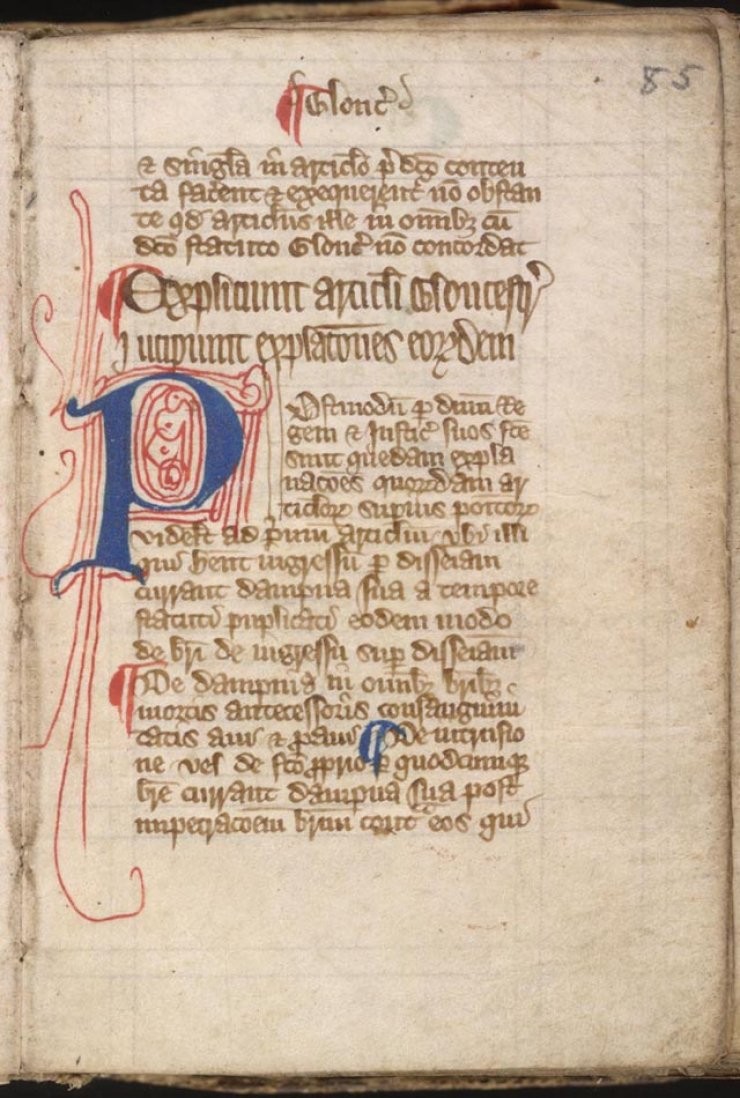 85
¶ Glouc̄
⁊ singl̄a in articl̄o p̄dc̄o conten
ta facent ⁊ exequerent᷑ nō obstan
te qd̛ articl̛us ille in omībꝫ cū
dc̄o statuto Glouc̄ nō concordat
¶ Expliciunt articl̄i Gloucestr̄
Incipiunt explac̄ōnes eorꝫdem
Postmodū ꝑ dn̄m Re
gem ⁊ Justic̄ suos fc̄e
sunt quedam expla
nac̄ōes quorꝫdam ar
ticl̄orꝫ supius poītorꝫ
videl̄t ad p̄mum articl̄m vbi illi
qui hēnt ingressū ꝑ disseīam
currant dampna sua a tempore
statuti puplicati eodem modo
de br̄i de ingressu suꝑ disseīam
¶ De dampnis in omībꝫ br̄ibꝫ
mortis antecessoris consanguini
tatis aui ⁊ ꝓaui ¶ De intrusio
ne vel de fc̄o ꝓprio ꝑ quodcumqꝫ
br̄e currant dampna sua post
impetrac̄oem br̄ium cont̄ eos qui